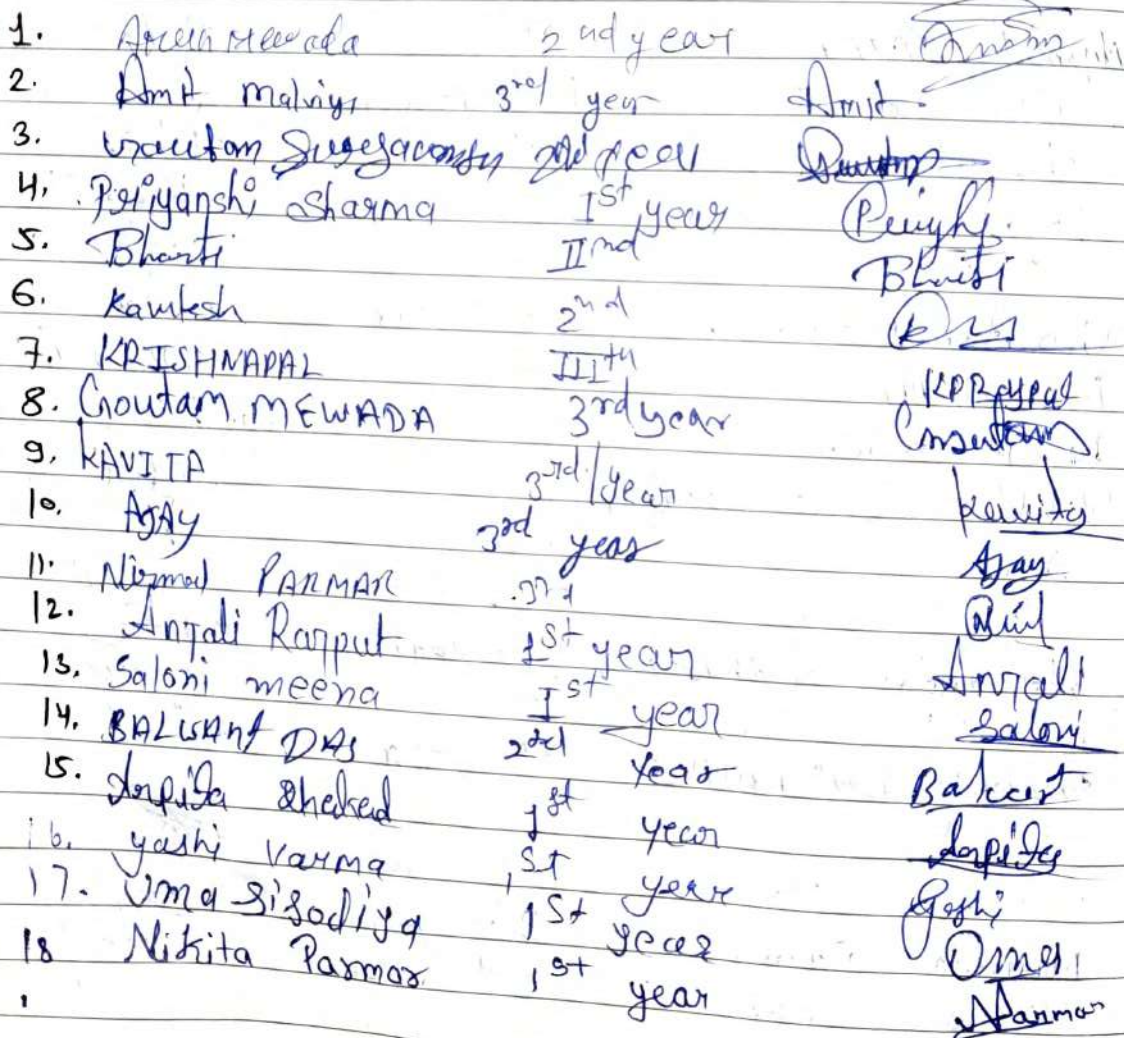 1. Arun Mewada 2nd year
2. Amit Malviya 3rd year Amit
3. Goutam 2nd year
4. Priyanshi Sharma Ist year
5. Bharti IInd Bharti
6. Kamlesh 2nd
7. KRISHNAPAL IIIth
8. Goutam MEWADA 3rd year Goutam
9. KAVITA 3rd year Kavita
10. AJAY 3rd year Ajay
11. Nirmal PARMAR
12. Anjali Rajput 1st year Anjali
13. Saloni meena Ist year Saloni
14. BALWANT DAS 2nd Year Balwant
15. Arpita 1st year Arpita
16. yashi Varma 1st year Yashi
17. Uma Sisodiya 1st year Uma
18 Nikita Parmar 1st year NParmar